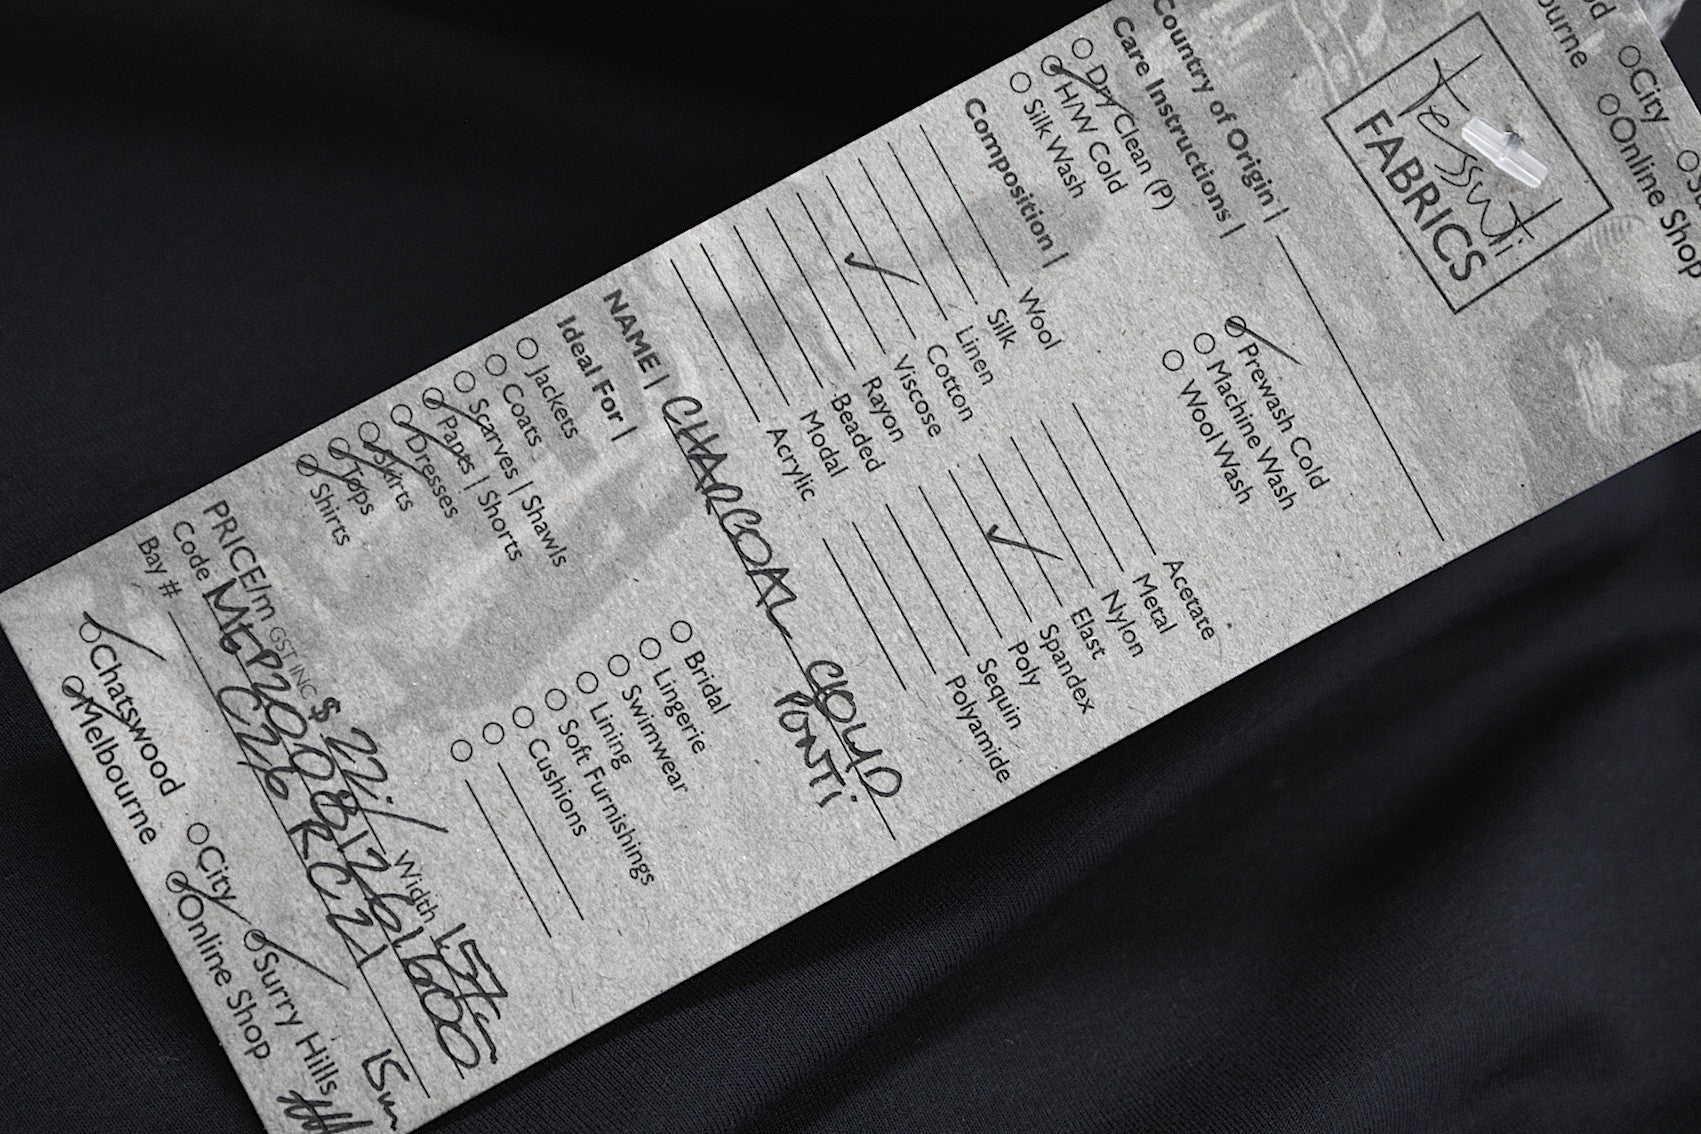 Tessuti
FABRICS
City
Online Shop
urne
Country of Origin |
Care Instructions |
Dry Clean (P)
H/W Cold
Silk Wash
Prewash Cold
Machine Wash
Wool Wash
Composition |
Wool
Silk
Linen
Cotton
Viscose
Rayon
Beaded
Modal
Acrylic
Acetate
Metal
Nylon
Elast
Spandex
Poly
Sequin
Polyamide
NAME | CHARCOAL CLOUD
PONTi
Ideal For |
Jackets
Coats
Scarves | Shawls
Pants | Shorts
Dresses
Skirts
Tops
Shirts
Bridal
Lingerie
Swimwear
Lining
Soft Furnishings
Cushions
PRICE/m GST INC $ 22.- Width
Code
Bay # C26 RC21
Chatswood
Melbourne
City
Surry Hills
Online Shop
15m